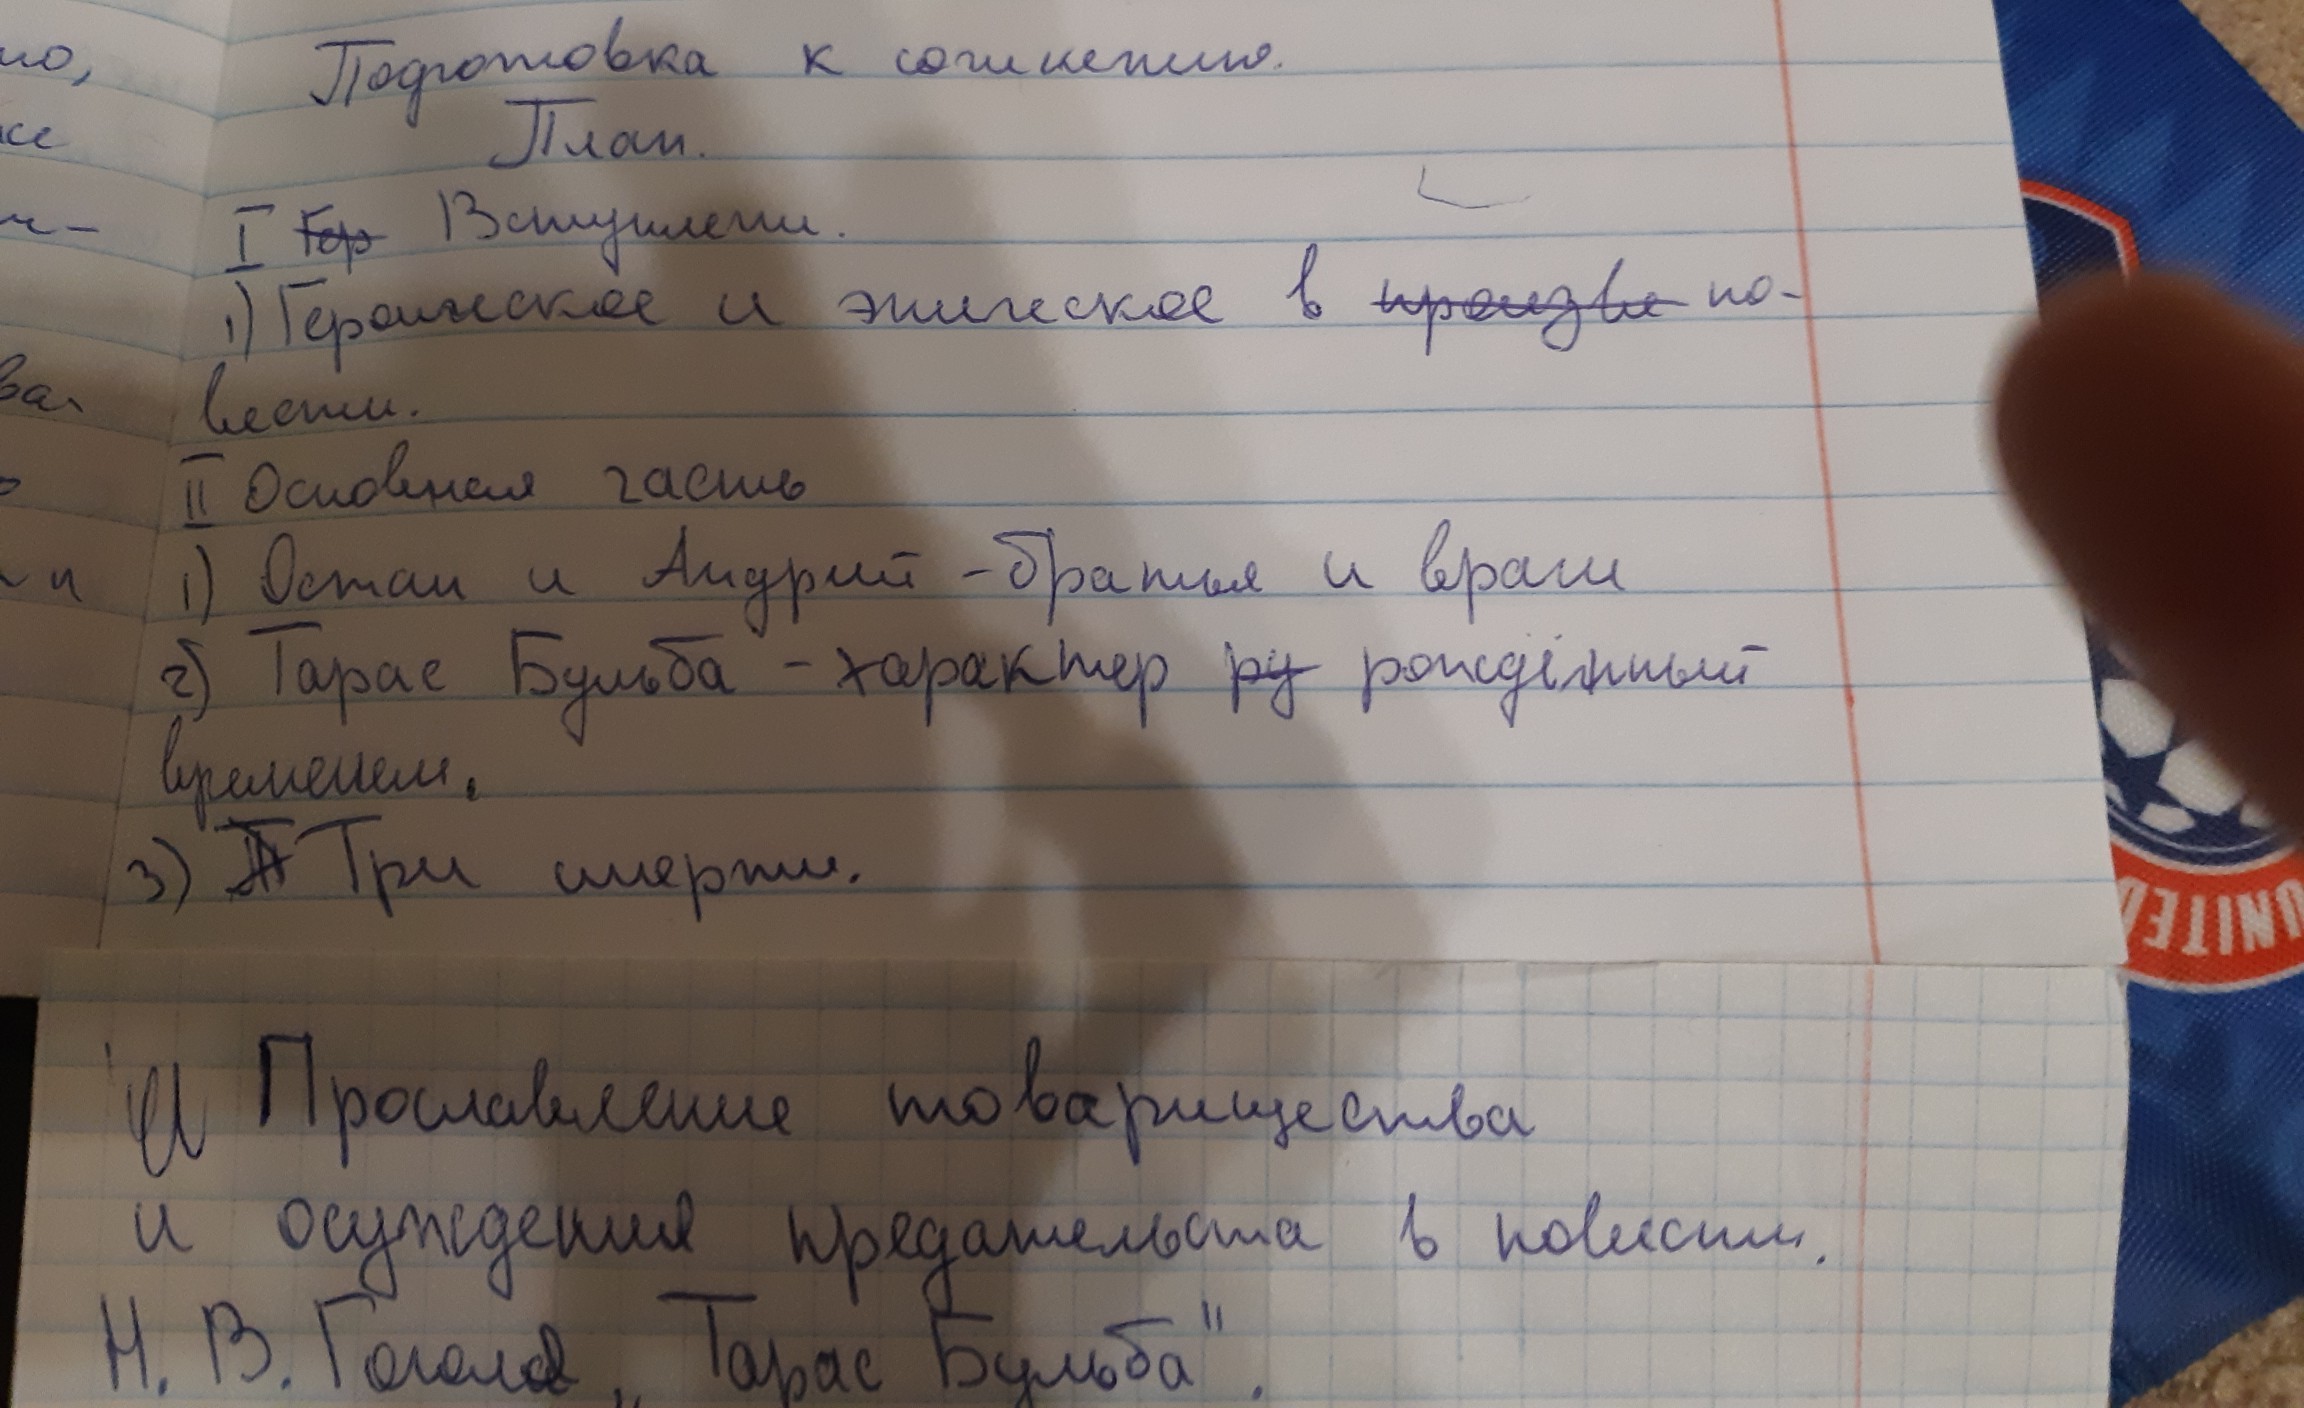 но,
Подготовка к сочинению.
План.
I Гер Вступлени.
1) Героическое и эпическое в произве по-
вести.
ва.
II Основная часть
1) Остап и Андрий - братья и враги
2) Тарас Бульба - характер ру рождённый
временем.
3) Три смерти.
Прославление товарищества
и осуждения предательста в повести.
Н. В. Гоголя „Тарас Бульба".
UNITED